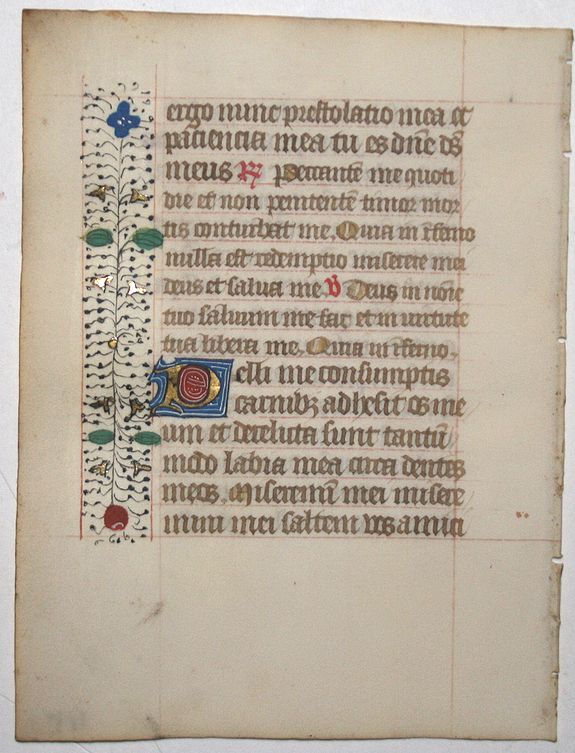 ergo nunc prestolatio mea et
paciencia mea tu es dñe ds̄
meus R̸ Peccantē me quoti
die et non penitentē timor mor
tis conturbat me. Quia in īferno
nulla est redemptio miserere mei
deus et salua me V̸ Deus in noīe
tuo saluum me fac et in uirtute
tua libera me. Quia in īferno.
Pelli me consumptis
carnibꝫ adhesit os me
um et derelicta sunt tantū
modo labia mea circa dentes
meos. Miseremī mei misere
mini mei saltem vos amici